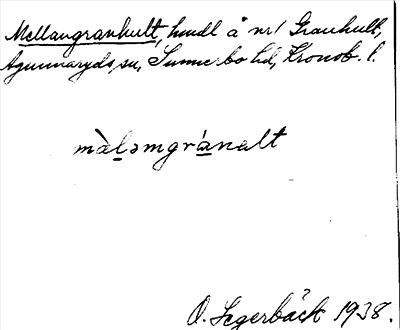 Mellangranhult, hmdl å nr 1 Granhult,
Agunnaryds sn, Sunnerbo hd, Kronob. l.
màl̲əmgrá̲nalt
O. Segerbäck 1938.